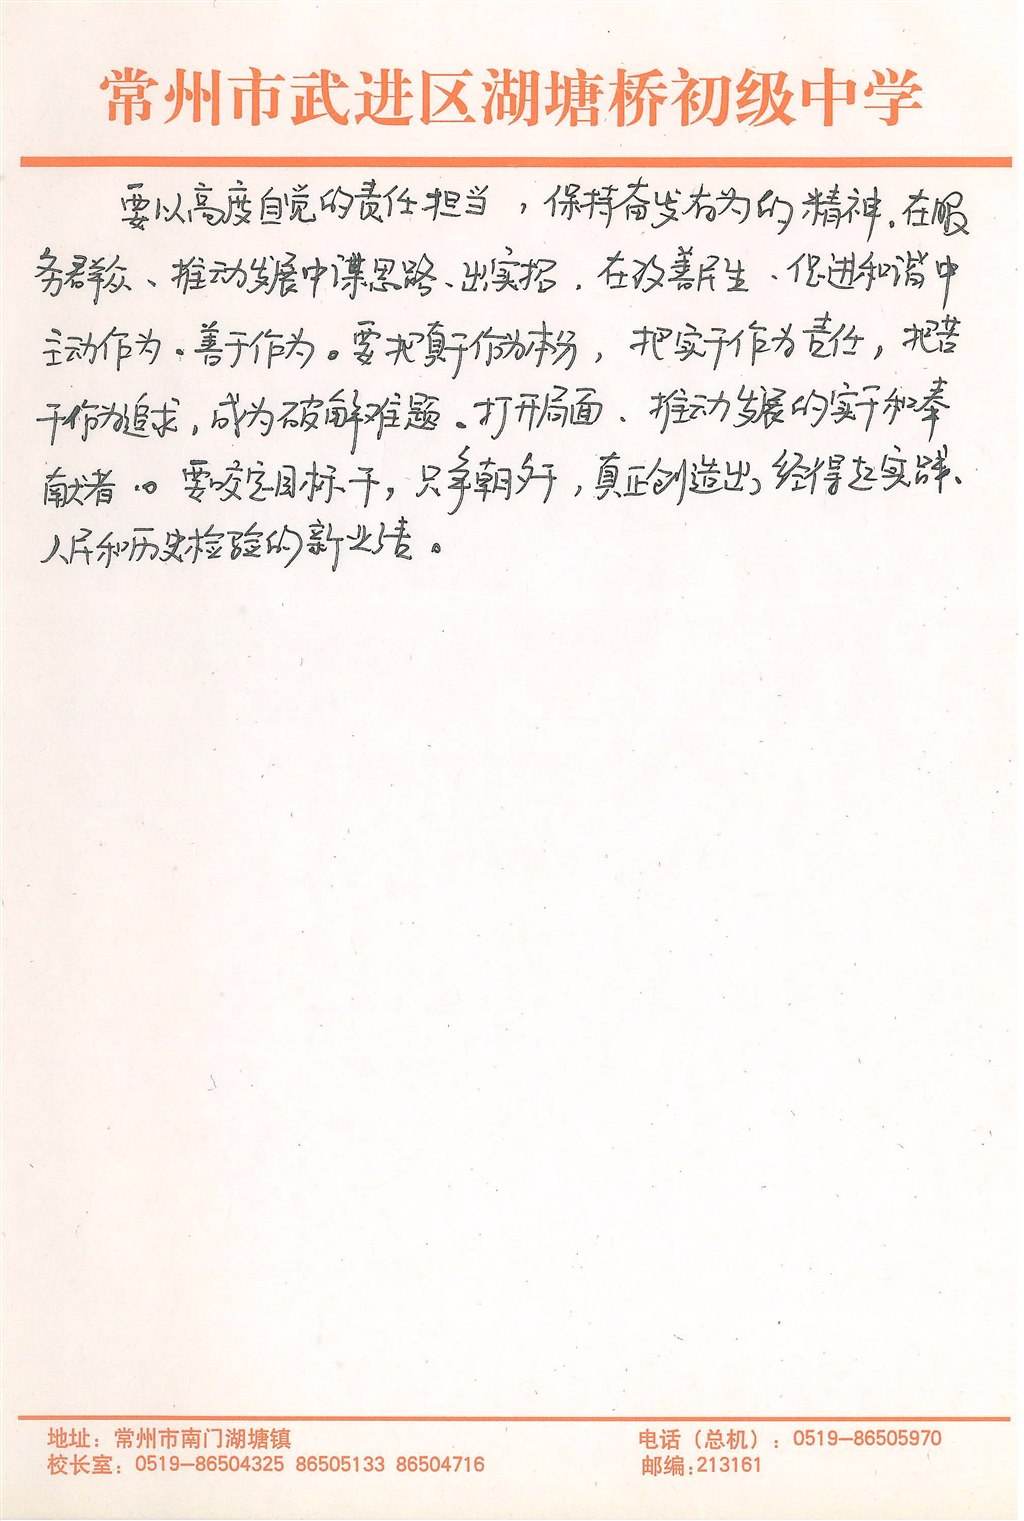 常州市武进区湖塘桥初级中学
要以高度自觉的责任担当，保持奋发有为的精神。在服
务群众、推动发展中谋思路、出实招．在改善民生、促进和谐中
主动作为、善于作为。要把真干作为本分，把实干作为责任，把苦
干作为追求，成为破解难题。打开局面、推动发展的实干和奉
献者。要咬定目标干，只争朝夕干，真正创造出经得起实践、
人民和历史检验的新业绩。
地址：常州市南门湖塘镇
电话（总机）：0519—86505970
校长室：0519—86504325 86505133 86504716
邮编:213161